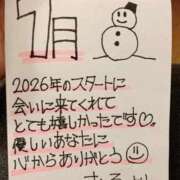 1月
2026年のスタートに
会いに来てくれて
とても嬉しかったです♡
優しいあなたに
心からありがとう☺